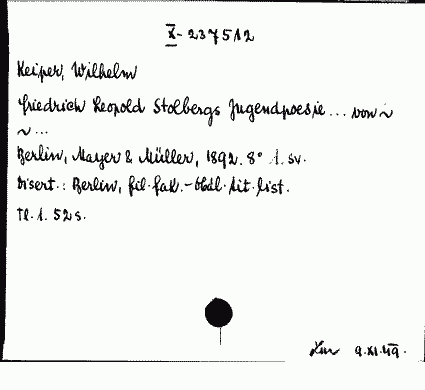 X-237512
Keiper, Wilhelm
Friedrich Leopold Stolbergs Jugendpoesie ... von ~
~ ...
Berlin, Mayer & Müller, 1892. 8° 1. sv.
Disert.: Berlin, fil. fak. - Obdl. lit. list.
Tl. 1. 52 s.
9.XI.49.